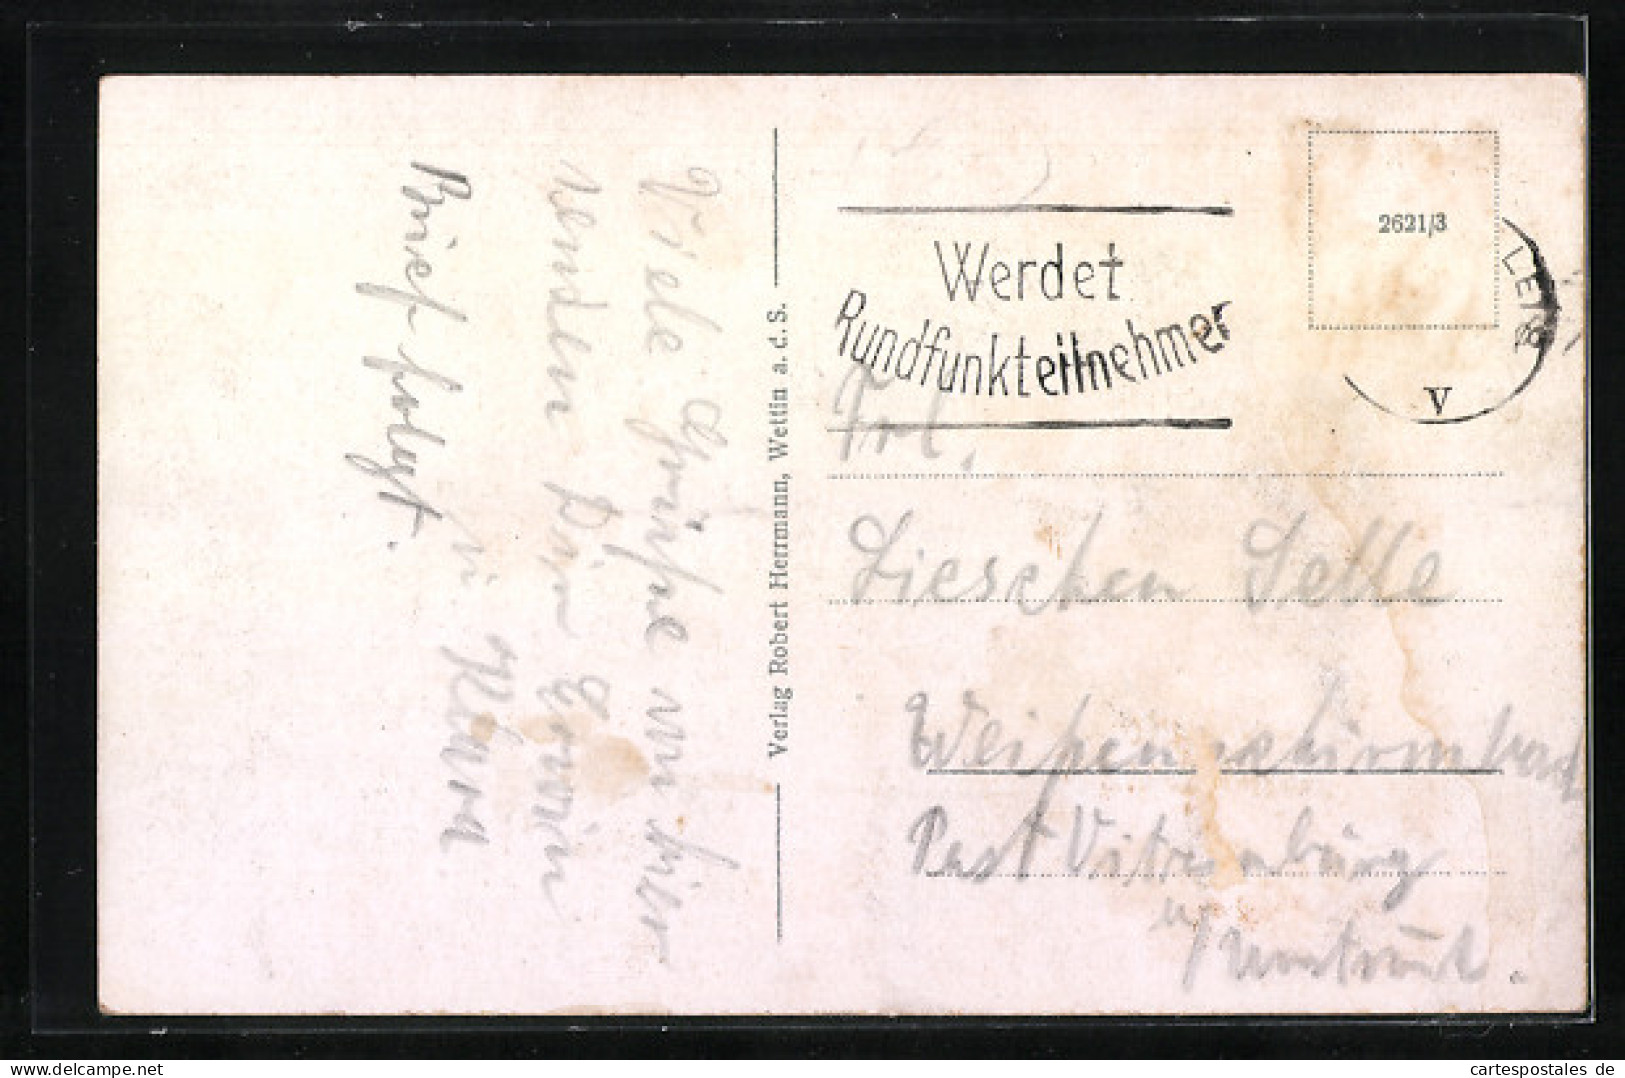 Viele Grüße von hier
senden Dir Erwin
u. Klara
Brief folgt.
Verlag Robert Herrmann, Wettin a. d. S.
Werdet
Rundfunkteilnehmer
2621/3
LEIP
V
Frl.
Lieschen Selle
Weißenschirmbach
Post Vitzenburg
a/ Unstrut.
cartespostales de